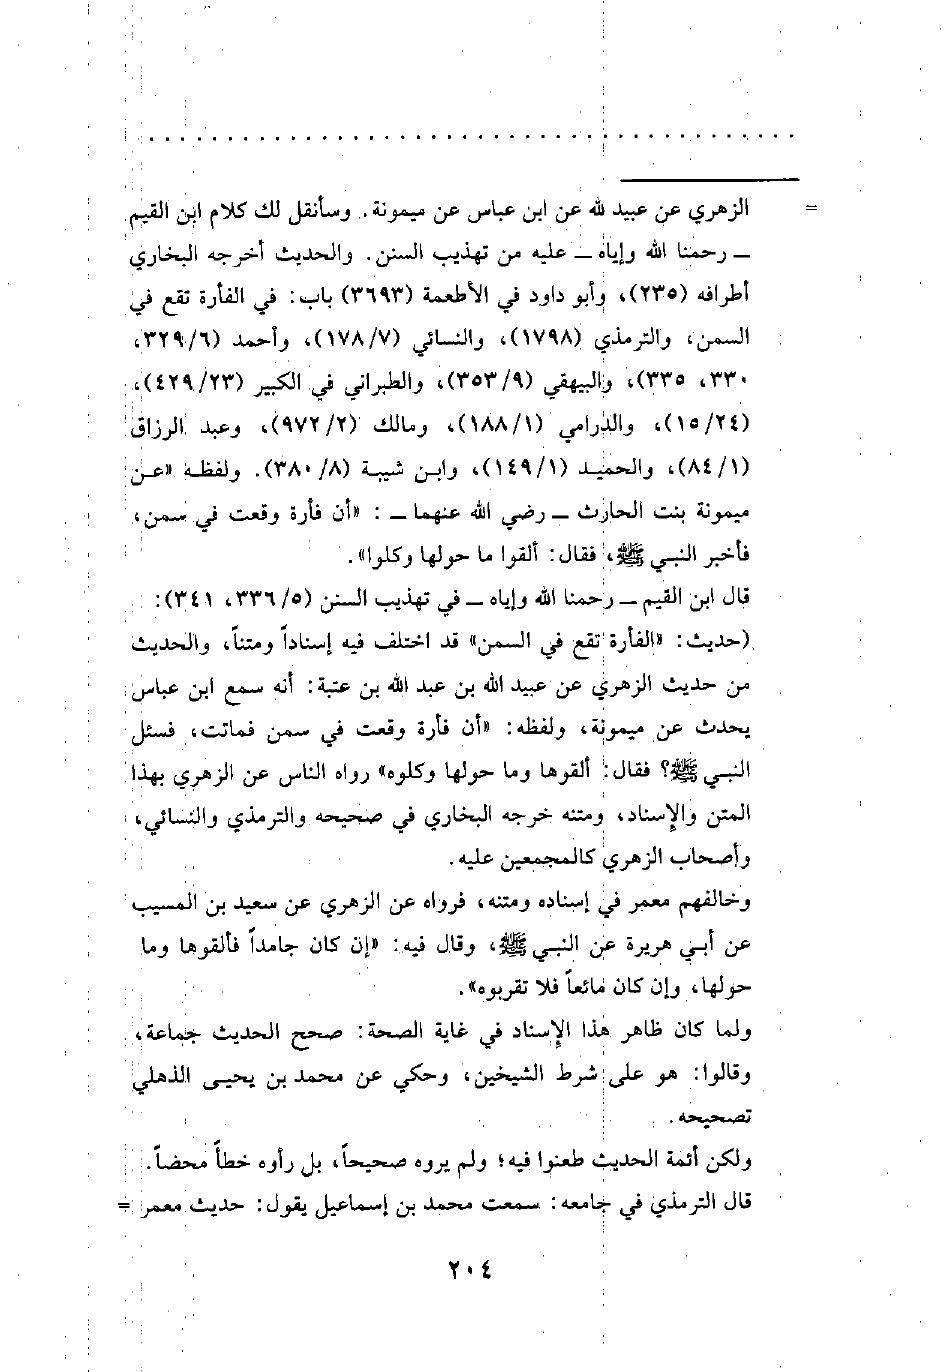 = الزهري عن عبيد لله عن ابن عباس عن ميمونة. وسأنقل لك كلام ابن القيم
ـ رحمنا الله وإياه ـ عليه من تهذيب السنن. والحديث أخرجه البخاري
أطرافه (٢٣٥)، وأبو داود في الأطعمة (٣٦٩٣) باب: في الفأرة تقع في
السمن، والترمذي (١٧٩٨)، والنسائي (١٧٨/٧)، وأحمد (٣٢٩/٦،
٣٣٠، ٣٣٥)، والبيهقي (٣٥٣/٩)، والطبراني في الكبير (٤٢٩/٢٣)،
(١٥/٢٤)، والدرامي (١٨٨/١)، ومالك (٩٧٢/٢)، وعبد الرزاق
(٨٤/١)، والحميد (١٤٩/١)، وابن شيبة (٣٨٠/٨). ولفظه «عن
ميمونة بنت الحارث ـ رضي الله عنهما ـ : «أن فأرة وقعت في سمن،
فأخبر النبي ﷺ، فقال: ألقوا ما حولها وكلوا».
قال ابن القيم ـ رحمنا الله وإياه ـ في تهذيب السنن (٣٣٦/٥، ٣٤١):
(حديث: «الفأرة تقع في السمن» قد اختلف فيه إسناداً ومتناً، والحديث
من حديث الزهري عن عبيد الله بن عبد الله بن عتبة: أنه سمع ابن عباس
يحدث عن ميمونة، ولفظه: «أن فأرة وقعت في سمن فماتت، فسئل
النبي ﷺ؟ فقال: ألقوها وما حولها وكلوه» رواه الناس عن الزهري بهذا
المتن والإسناد، ومتنه خرجه البخاري في صحيحه والترمذي والنسائي،
وأصحاب الزهري كالمجمعين عليه.
وخالفهم معمر في إسناده ومتنه، فرواه عن الزهري عن سعيد بن المسيب
عن أبي هريرة عن النبي ﷺ، وقال فيه: «إن كان جامداً فألقوها وما
حولها، وإن كان مائعاً فلا تقربوه».
ولما كان ظاهر هذا الإسناد في غاية الصحة: صحح الحديث جماعة،
وقالوا: هو على شرط الشيخين، وحكي عن محمد بن يحيى الذهلي
تصحيحه.
ولكن أئمة الحديث طعنوا فيه؛ ولم يروه صحيحاً، بل رأوه خطأ محضاً.
قال الترمذي في جامعه: سمعت محمد بن إسماعيل يقول: حديث معمر =
٢٠٤